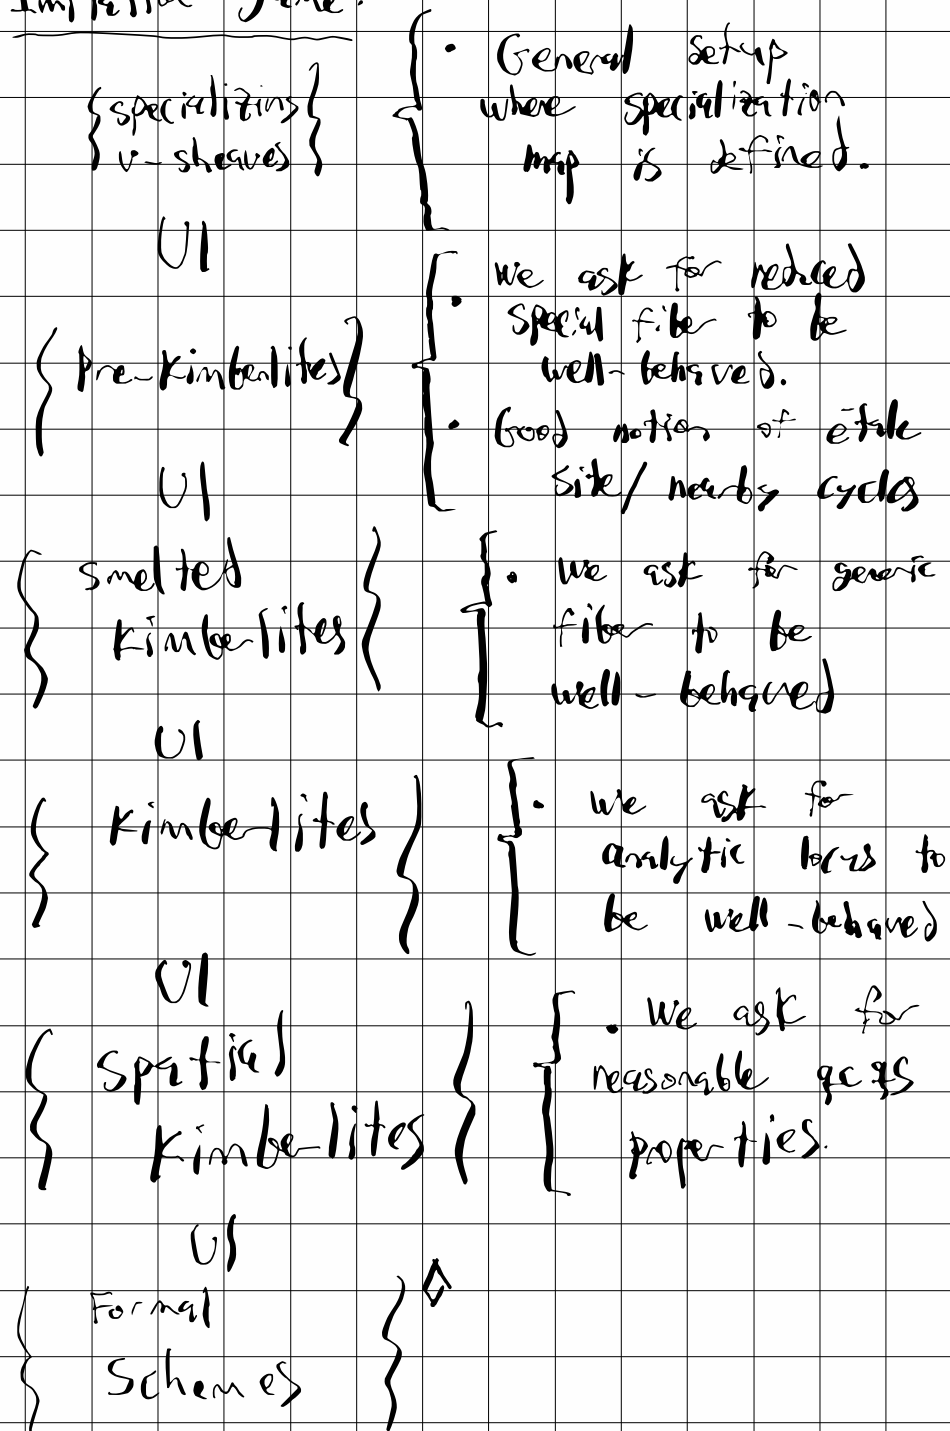 game:
{specializing
v-sheaves}
{• General setup
where specialization
map is defined.
UI
{Pre-Kimberlites}
{• we ask for reduced
special fiber to be
well-behaved.
• Good notion of étale
site/nearby cycles
UI
{smelted
kimberlites}
{• we ask for generic
fiber to be
well-behaved
UI
{kimberlites}
{• we ask for
analytic locus to
be well-behaved
UI
{spatial
kimberlites}
{• we ask for
reasonable qcqs
properties.
UI
{Formal
Schemes}◊